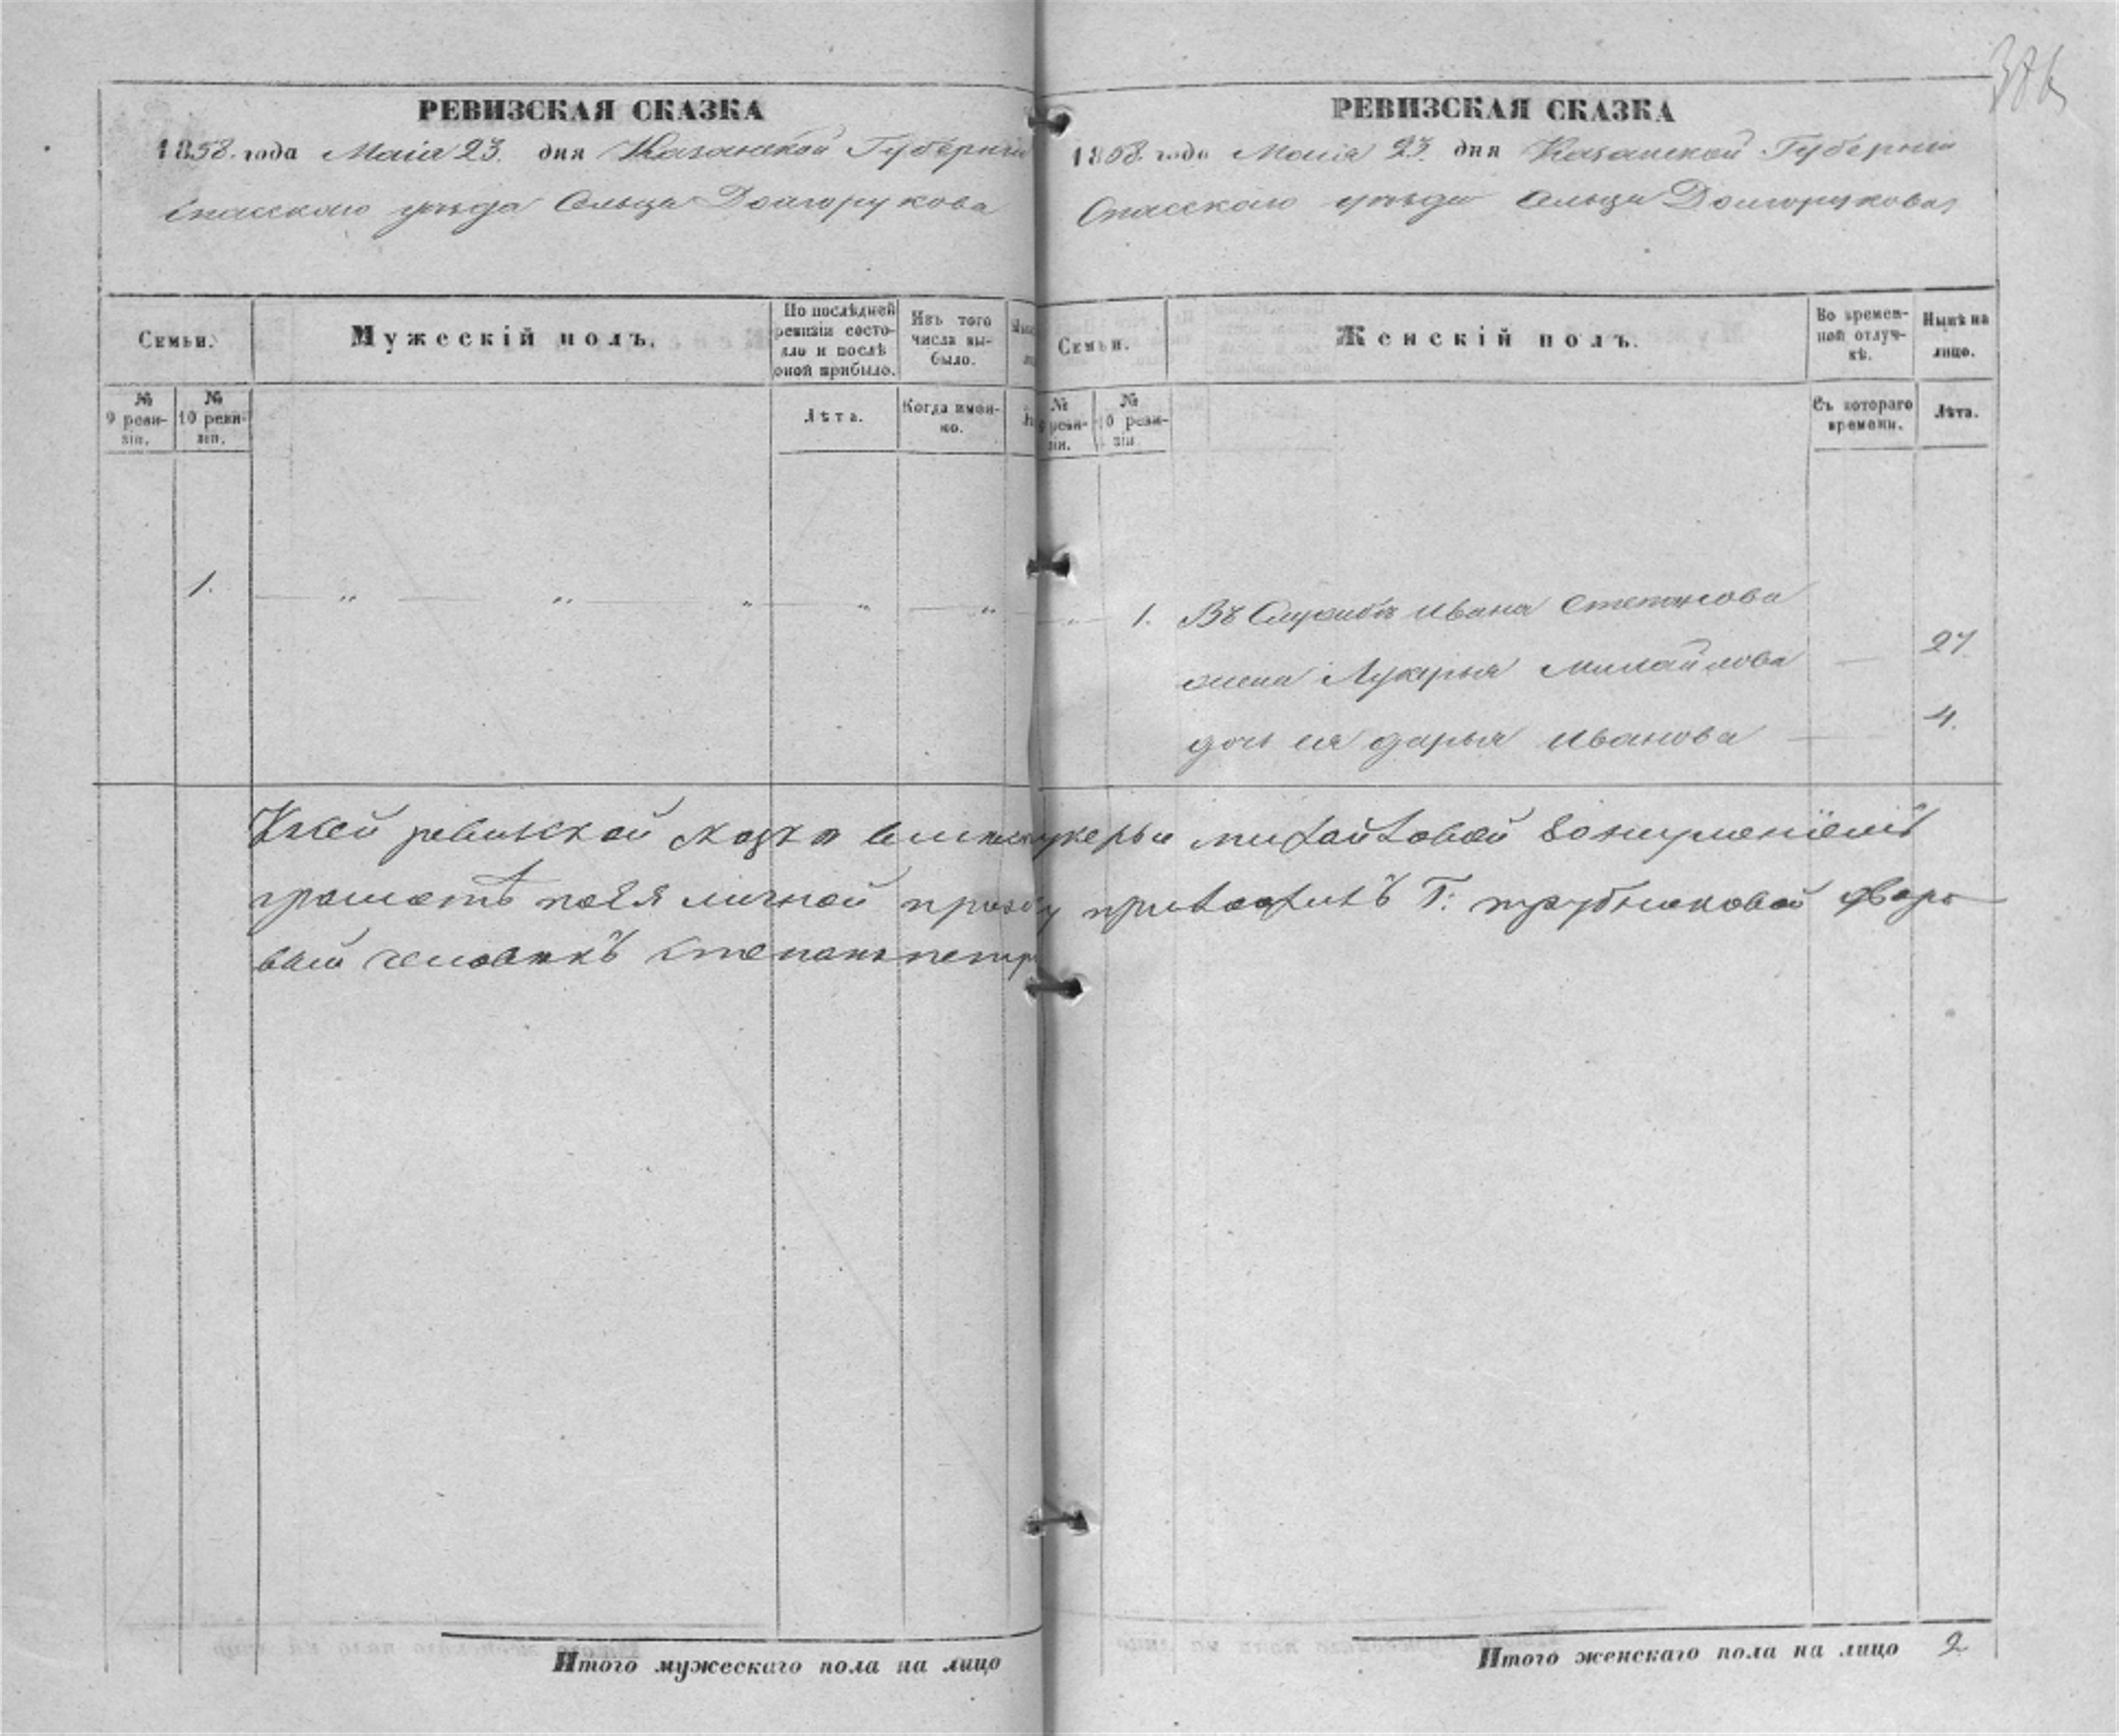 386
РЕВИЗСКАЯ СКАЗКА
1858. года Маія 23. дня Казанской Губерніи
Спасскаго уѣзда Сельца Долгорукова
Семьи.
Мужескій полъ.
По послѣдней ревизіи состояло и послѣ оной прибыло.
Изъ того числа выбыло.
№ 9 ревизіи.
№ 10 ревизіи.
Лѣта.
Когда именно.
1. „ „ „ „ „
Итого мужескаго пола на лицо
РЕВИЗСКАЯ СКАЗКА
1858. года Маія 23. дня Казанской Губерніи
Спасскаго уѣзда Сельца Долгорукова
Семьи.
Женскій полъ.
Во временной отлучкѣ.
Нынѣ на лицо.
№ 9 ревизіи.
№ 10 ревизіи
Съ котораго времени.
Лѣта.
1. Въ Службѣ Ивана Степанова
жена Лукерья Михайлова 27.
дочь ея дарья Иванова 4.
Ксей ревизской скаске вместо лукерьи михайловой
грамотѣ поея личной прозбу приложилъ Г: трубниковой дваро
вай человекъ степанъ петр
Итого женскаго пола на лицо 2